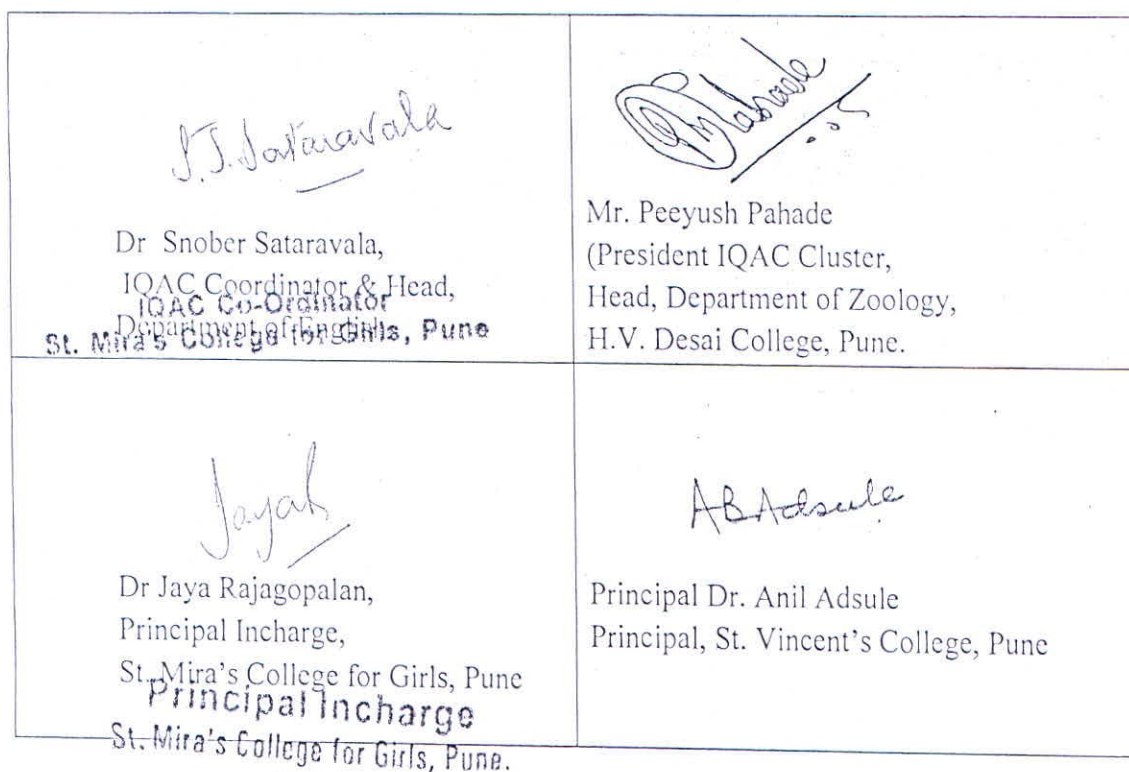 S.J. Sataravala
Dr Snober Sataravala,
IQAC Coordinator & Head,
IQAC Co-Ordinator
Department of English
St. Mira's College for Girls, Pune
Mr. Peeyush Pahade
(President IQAC Cluster,
Head, Department of Zoology,
H.V. Desai College, Pune.
Dr Jaya Rajagopalan,
Principal Incharge,
St. Mira's College for Girls, Pune
Principal Incharge
St. Mira's College for Girls, Pune.
ABAdsule
Principal Dr. Anil Adsule
Principal, St. Vincent's College, Pune